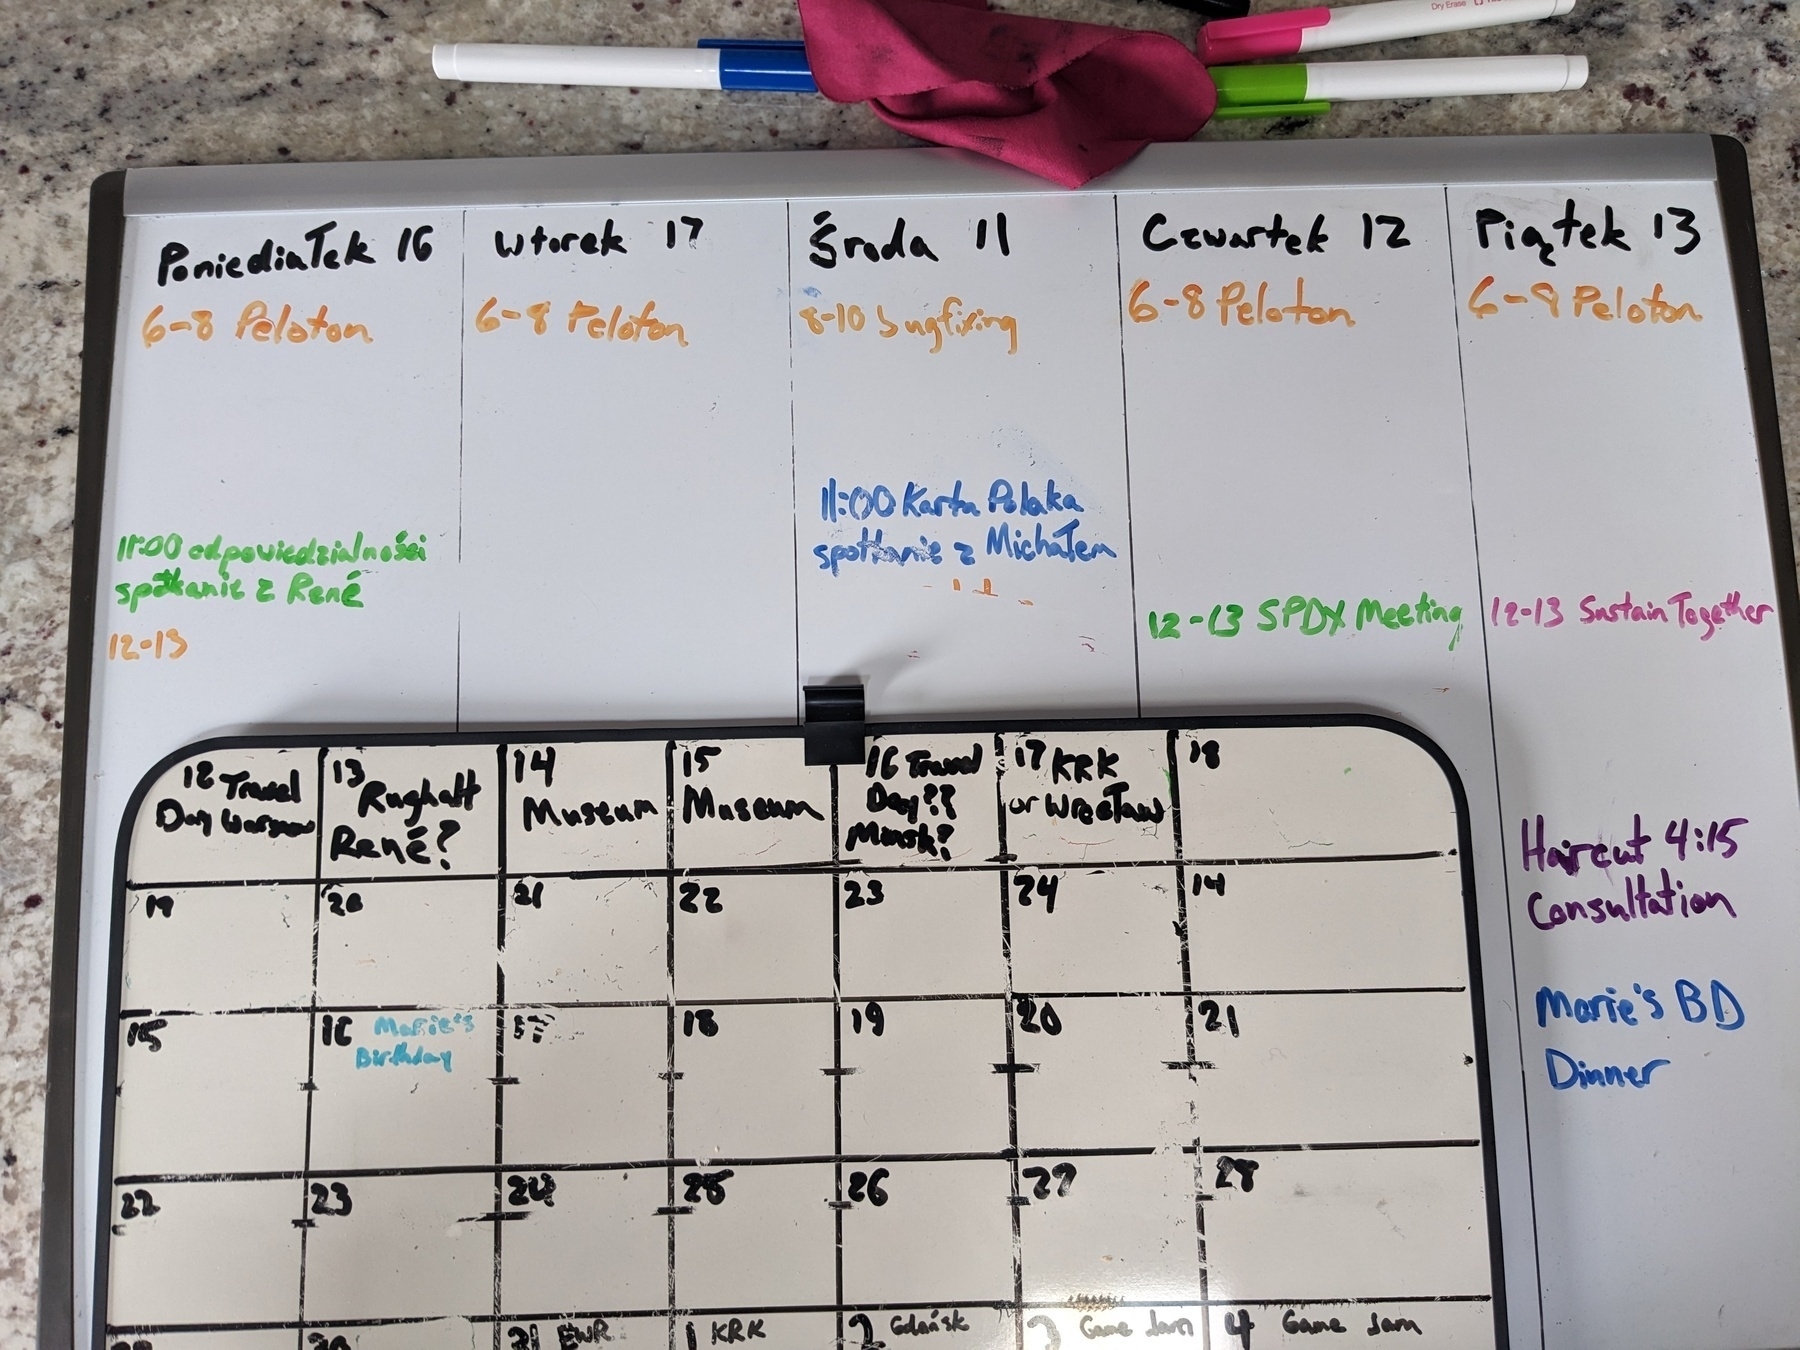 Dry Erase
Poniediałek 16
6-8 Peloton
11:00 odpowiedzialności
spotkanie z René
12-13
Wtorek 17
6-8 Peloton
Środa 11
8-10 bugfixing
11:00 Karta Polaka
spotkanie z Michałem
Czwartek 12
6-8 Peloton
12-13 SPDX Meeting
Piątek 13
6-8 Peloton
12-13 Sustain Together
Haircut 4:15
Consultation
Marie's BD
Dinner
12 Travel
Day Warsaw
13
René?
14
Museum
15
Museum
16 Travel
Day??
17 KRK
or Wrocław
18
19
20
21
22
23
24
14
15
16 Marie's
Birthday
18
19
20
21
22
23
24
25
26
27
28
30
31 EWR
1 KRK
2 Gdańsk
3 Game Jam
4 Game Jam